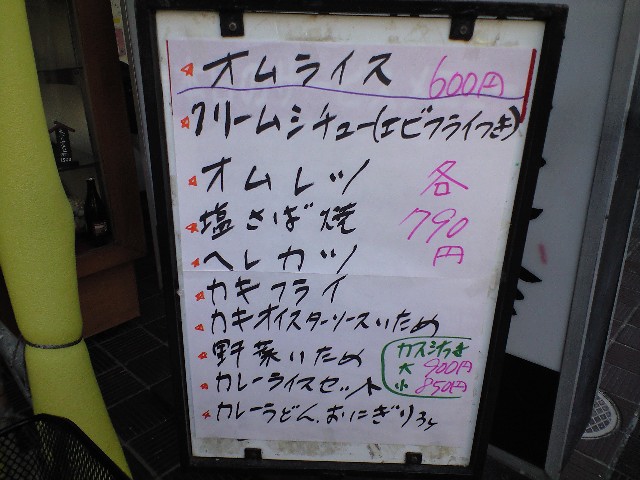 オムライス 600円
クリームシチュー(エビフライつき)
オムレツ 各
塩さば焼 790
ヘレカツ 円
カキフライ
カキオイスターソースいため
野菜いため カスジつき
大 900円
カレーライスセット 小 850円
カレーうどん、おにぎり